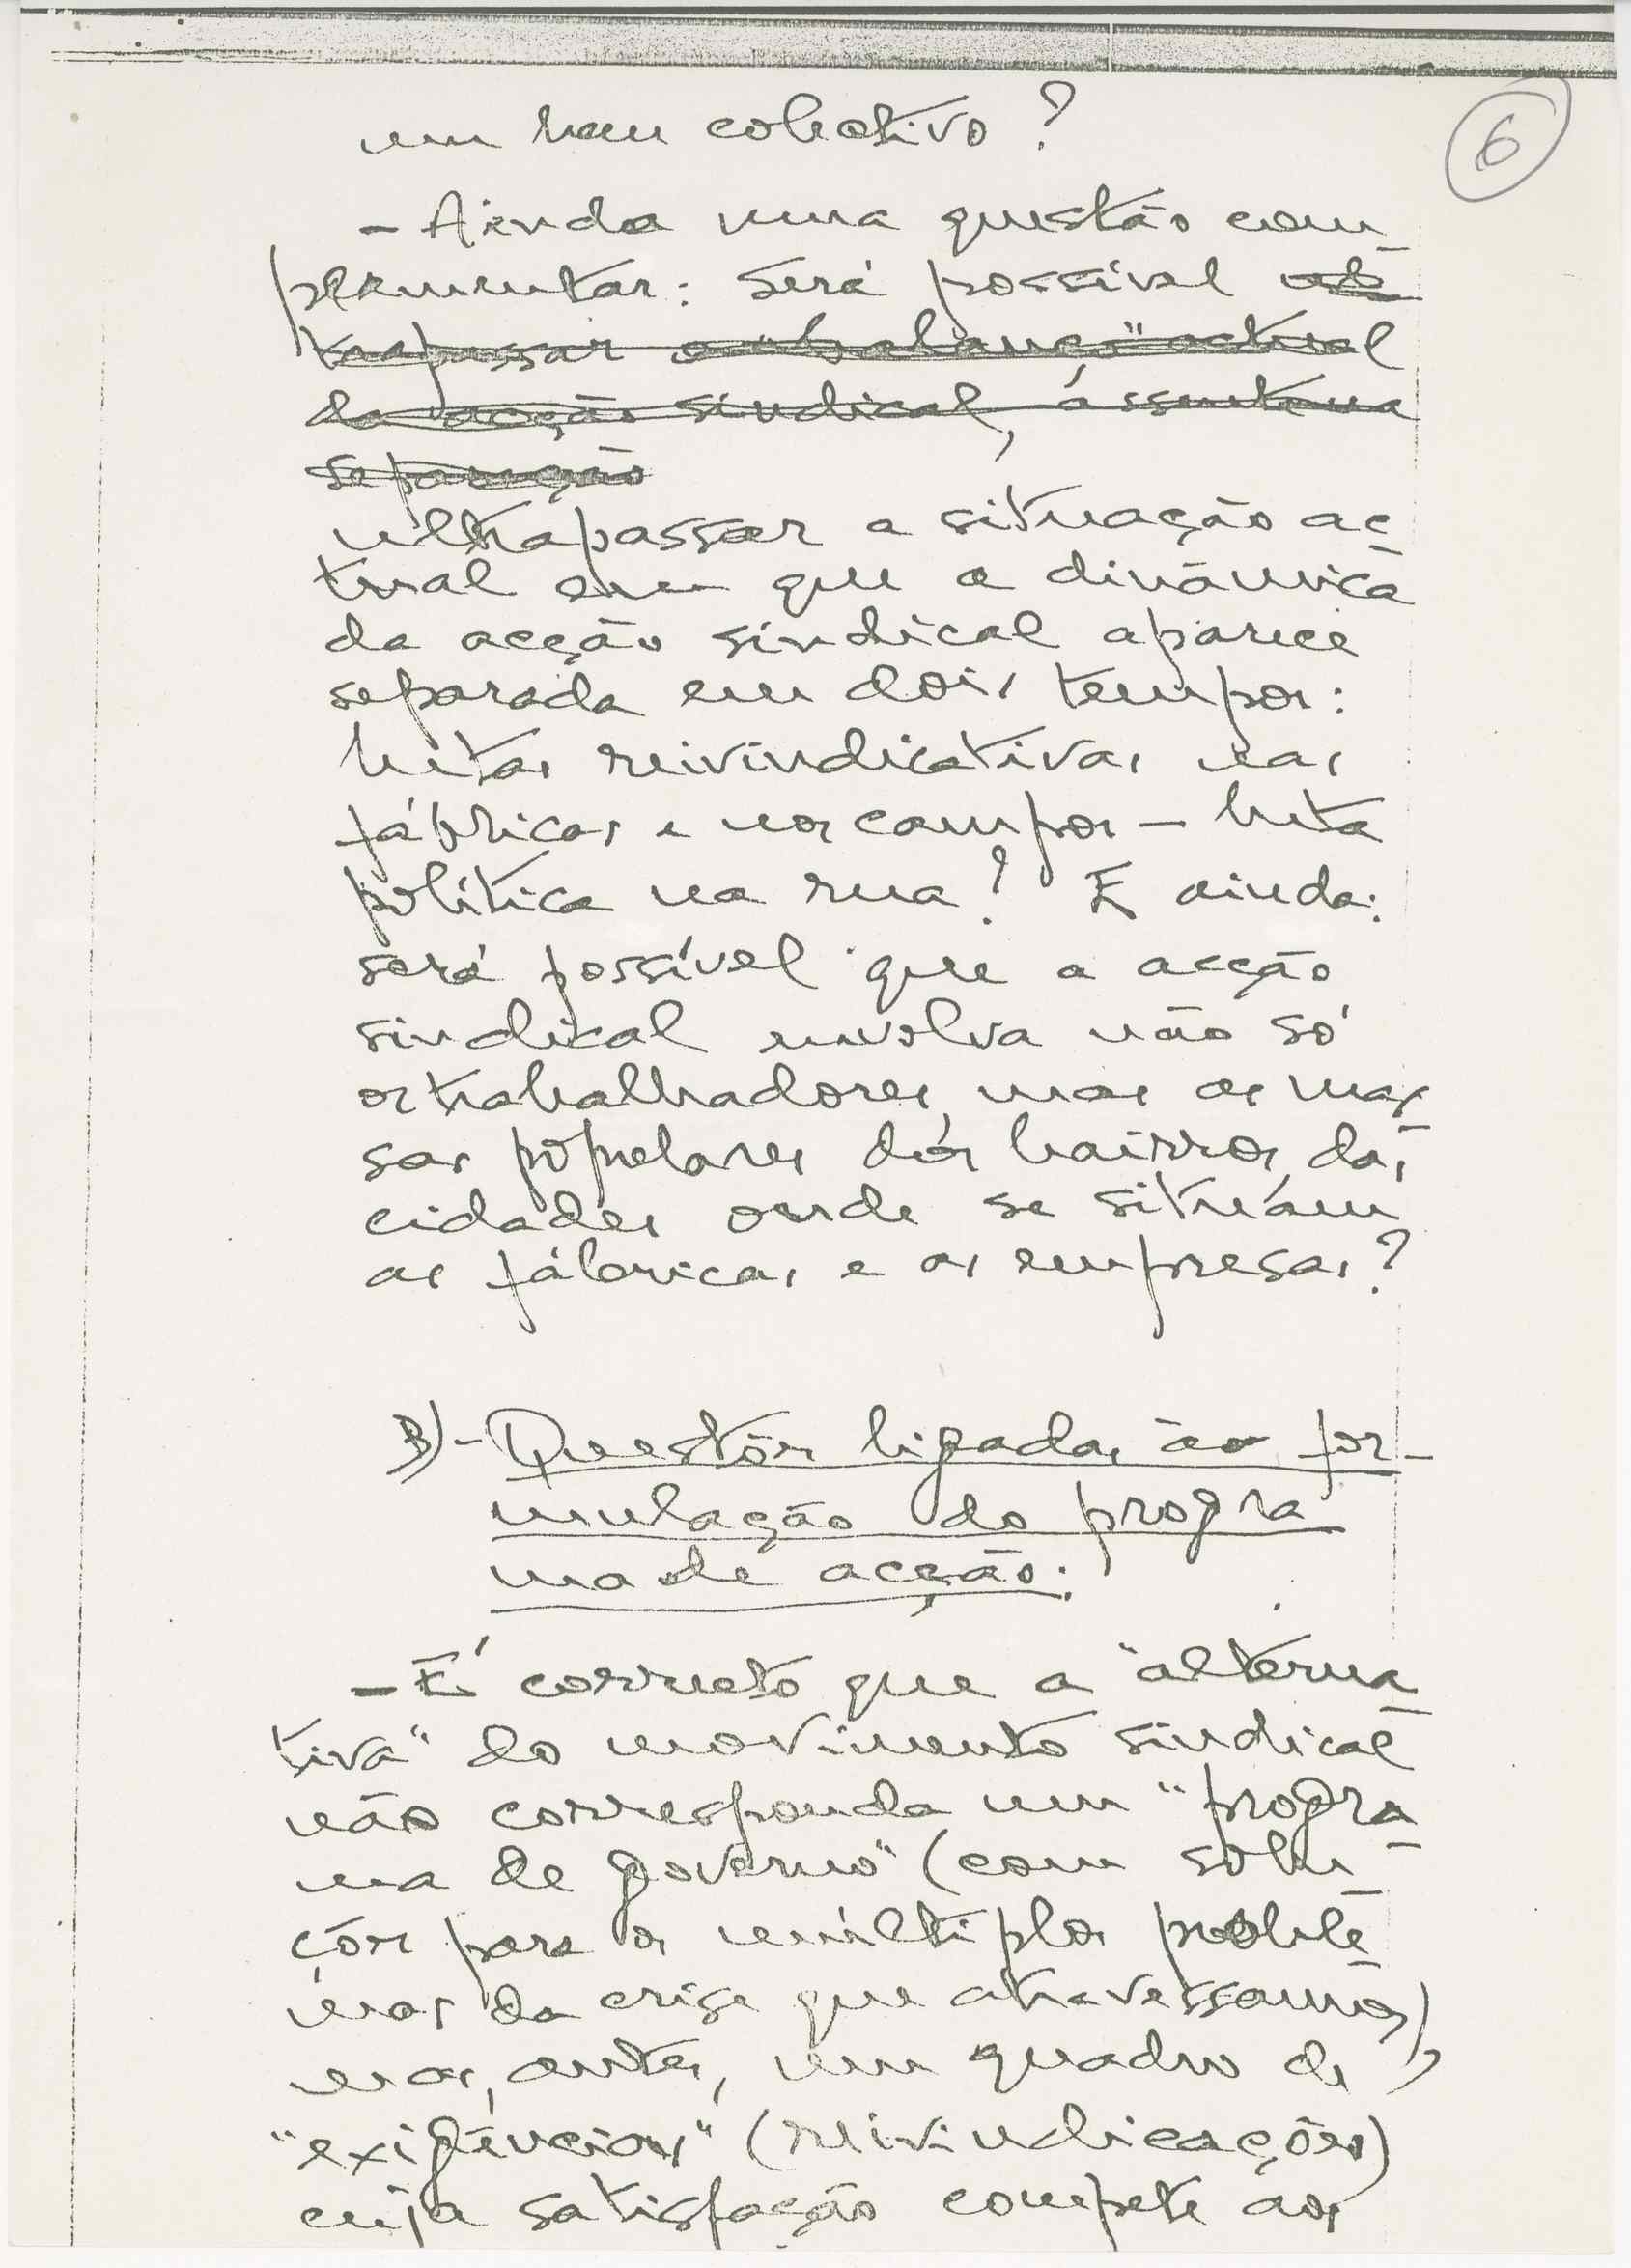 um bem colectivo?
6
- Ainda uma questão com-
plementar: será possível ul-
trapassar o "balanço" actual
da acção sindical, assente na
separação
ultrapassar a situação ac-
tual em que a dinâmica
da acção sindical aparece
separada em dois tempos:
lutas reivindicativas nas
fábricas e nos campos - luta
política na rua? E ainda:
será possível que a acção
sindical envolva não só
os trabalhadores, mas as mas-
sas populares dos bairros das
cidades onde se situam
as fábricas e as empresas?
B) - Questões ligadas à for-
mulação do progra
ma de acção:
- É correcto que a "alterna-
tiva" do movimento sindical
não corresponda um "progra-
ma de governo" (com solu-
ções para os múltiplos proble-
mas da crise que atravessamos),
mas, antes, um quadro de
"exigências" (reivindicações)
cuja satisfação compete aos